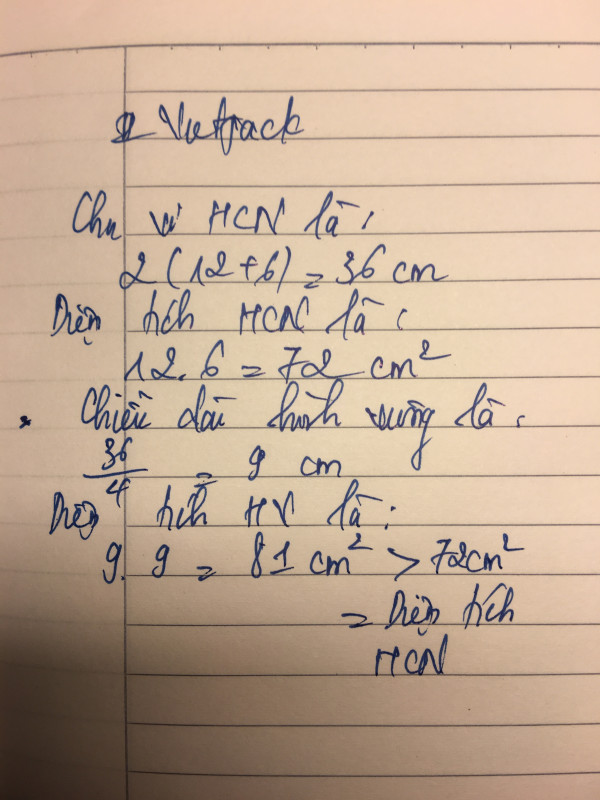 Vietjack
Chu vi HCN là:
2 (12+6) = 36 cm
Diện tích HCN là:
12. 6 = 72 cm²
* Chiều dài hình vuông là:
36/4 = 9 cm
Diện tích HV là:
9. 9 = 81 cm² > 72cm²
= Diện tích
HCN